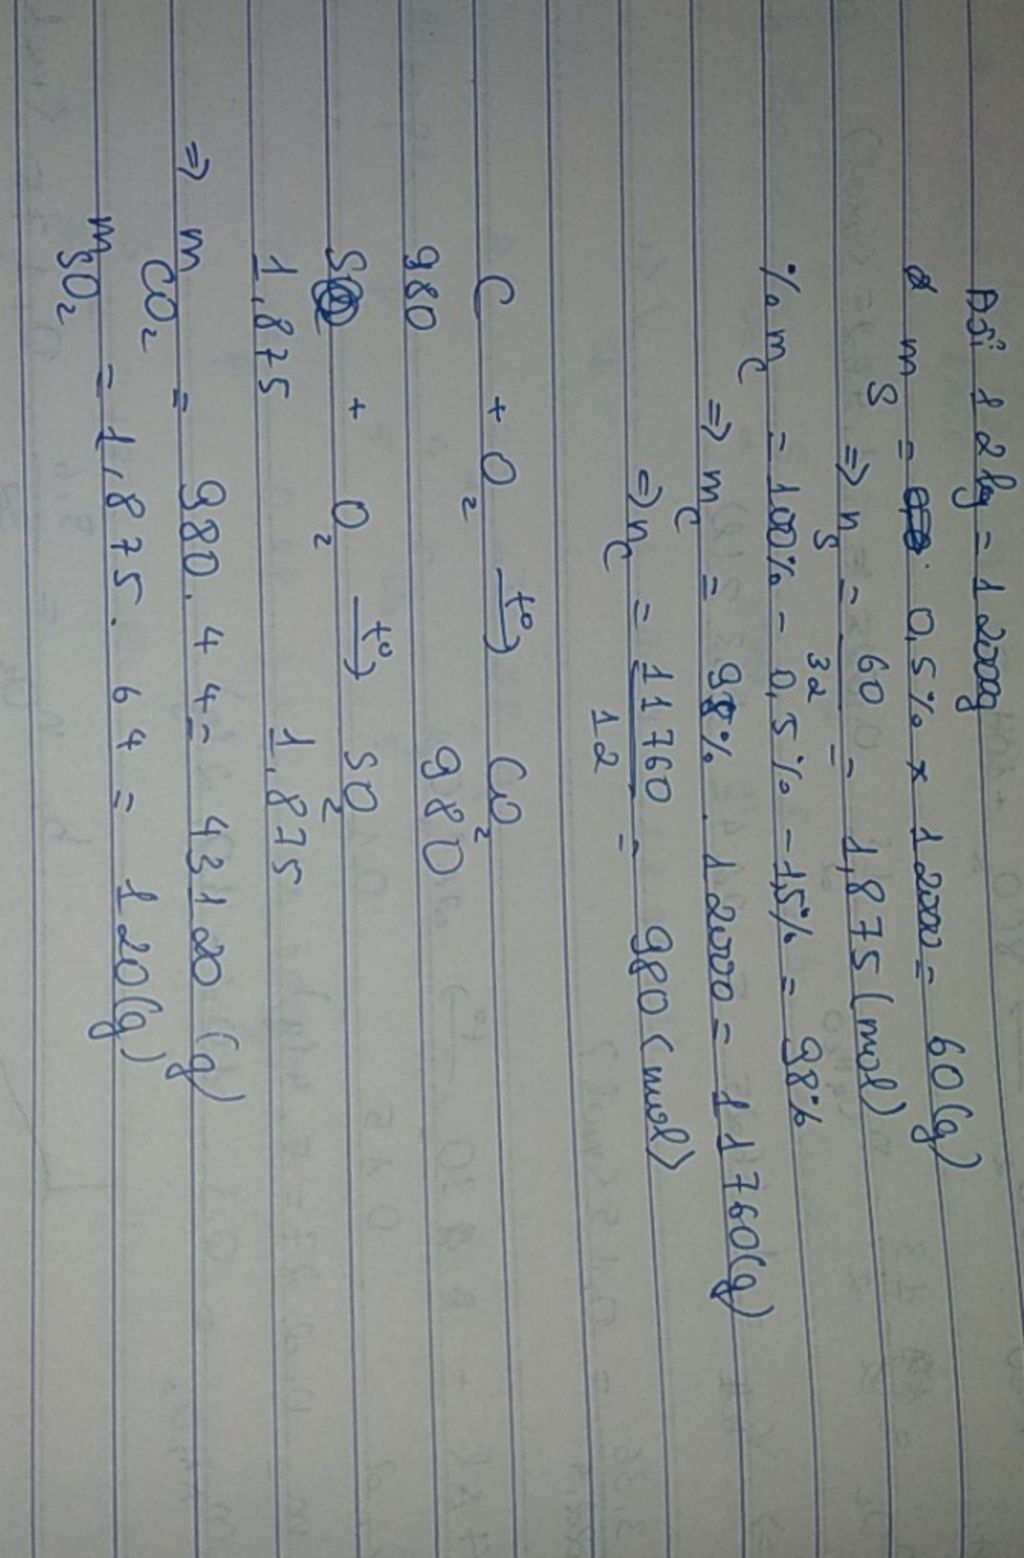 Đổi 12kg = 12000g
m_S = 0,5% × 12000 = 60(g)
=> n_S = 60/32 = 1,875(mol)
% m_C = 100% - 0,5% - 1,5% = 98%
=> m_C = 98% . 12000 = 11760(g)
=> n_C = 11760/12 = 980(mol)
C + O₂ —t°→ CO₂
980 980
S + O₂ —t°→ SO₂
1,875 1,875
=> m CO₂ = 980. 44 = 43120 (g)
m SO₂ = 1,875. 64 = 120(g)